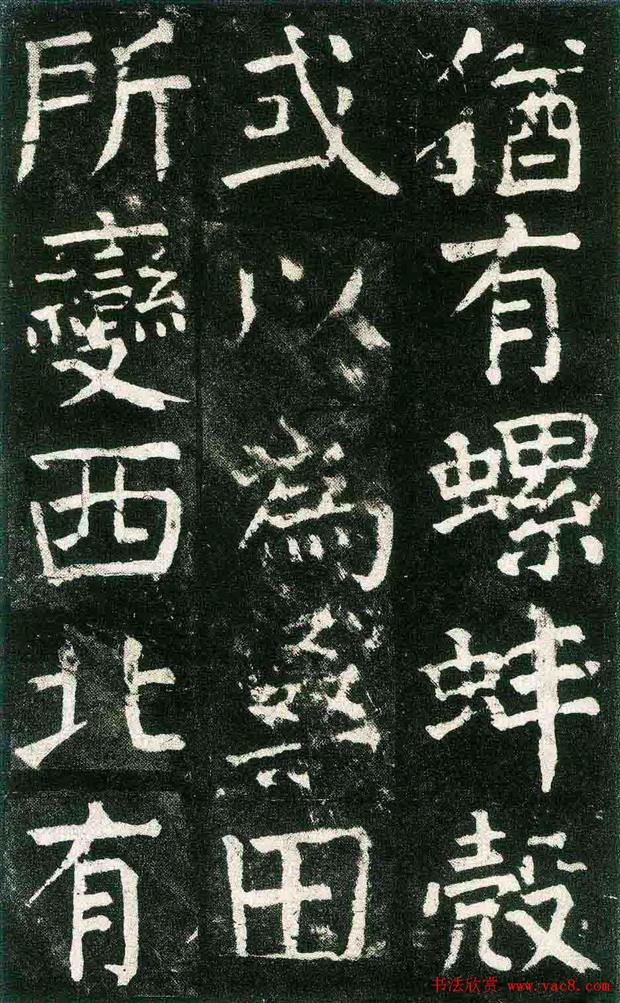 猶有螺蚌殼
或以為桑田
所變西北有
书法欣赏 www.yac8.com